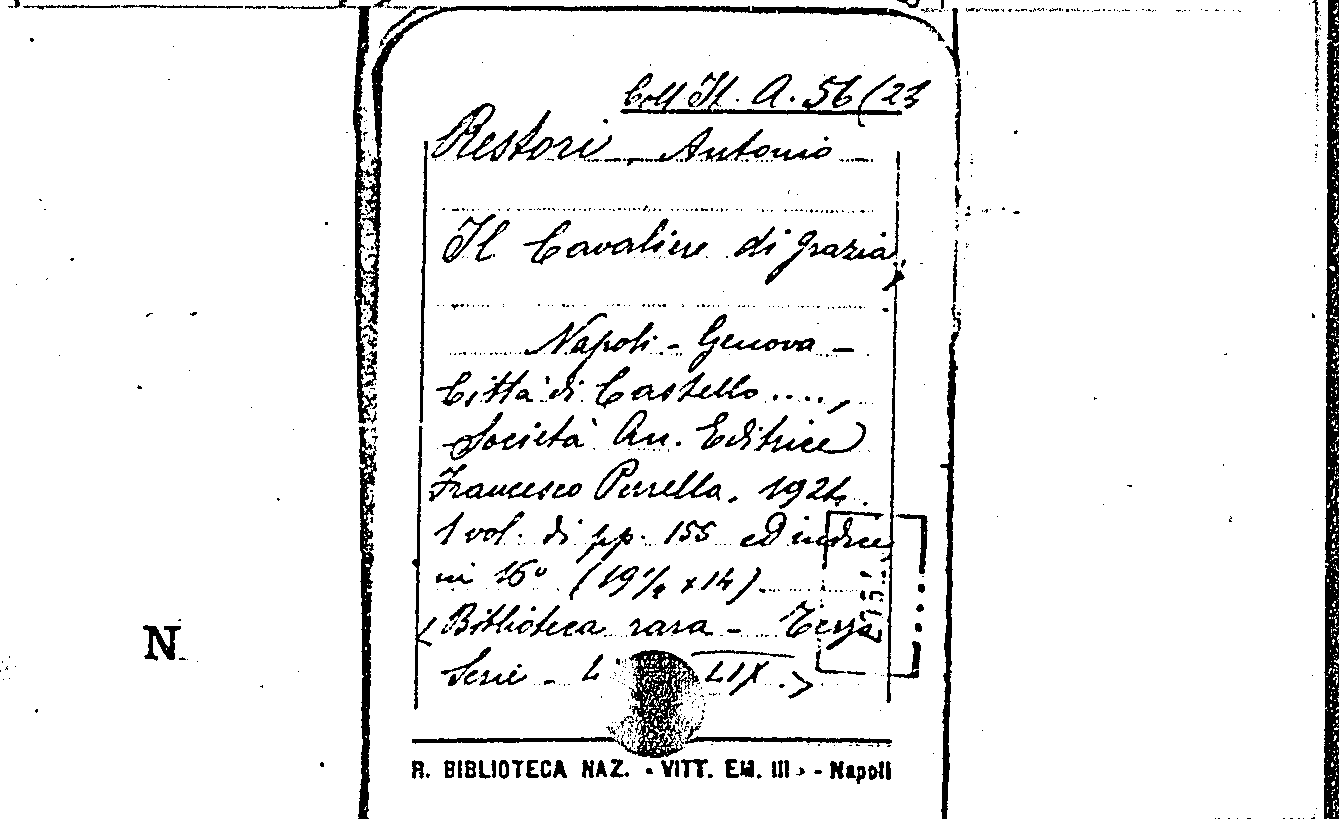 Coll It. A. 56 (23
Restori, Antonio –
Il Cavaliere di grazia,
Napoli - Genova –
Città di Castello ....,
Società An. Editrice
Francesco Perrella, 1924.
1 vol. di pp. 155 ed indice,
in 16° (19½ x 14)
< Biblioteca rara – Terza
Serie – LIX >
N
R. BIBLIOTECA NAZ. « VITT. EM. III » - Napoli